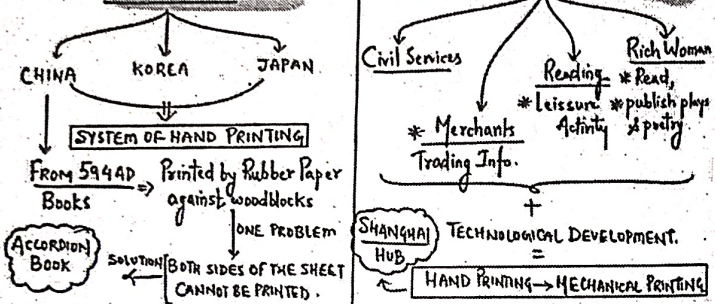 CHINA
KOREA
JAPAN
SYSTEM OF HAND PRINTING
FROM 594AD => Printed by Rubber Paper
Books against woodblocks
ONE PROBLEM
ACCORDION
BOOK
SOLUTION
BOTH SIDES OF THE SHEET
CANNOT BE PRINTED.
Civil Services
* Merchants
Trading Info.
Reading
* Leissure
Activity
Rich Woman
* Read,
* publish plays
& poetry
+
SHANGHAI
HUB
TECHNOLOGICAL DEVELOPMENT.
=
HAND PRINTING → MECHANICAL PRINTING